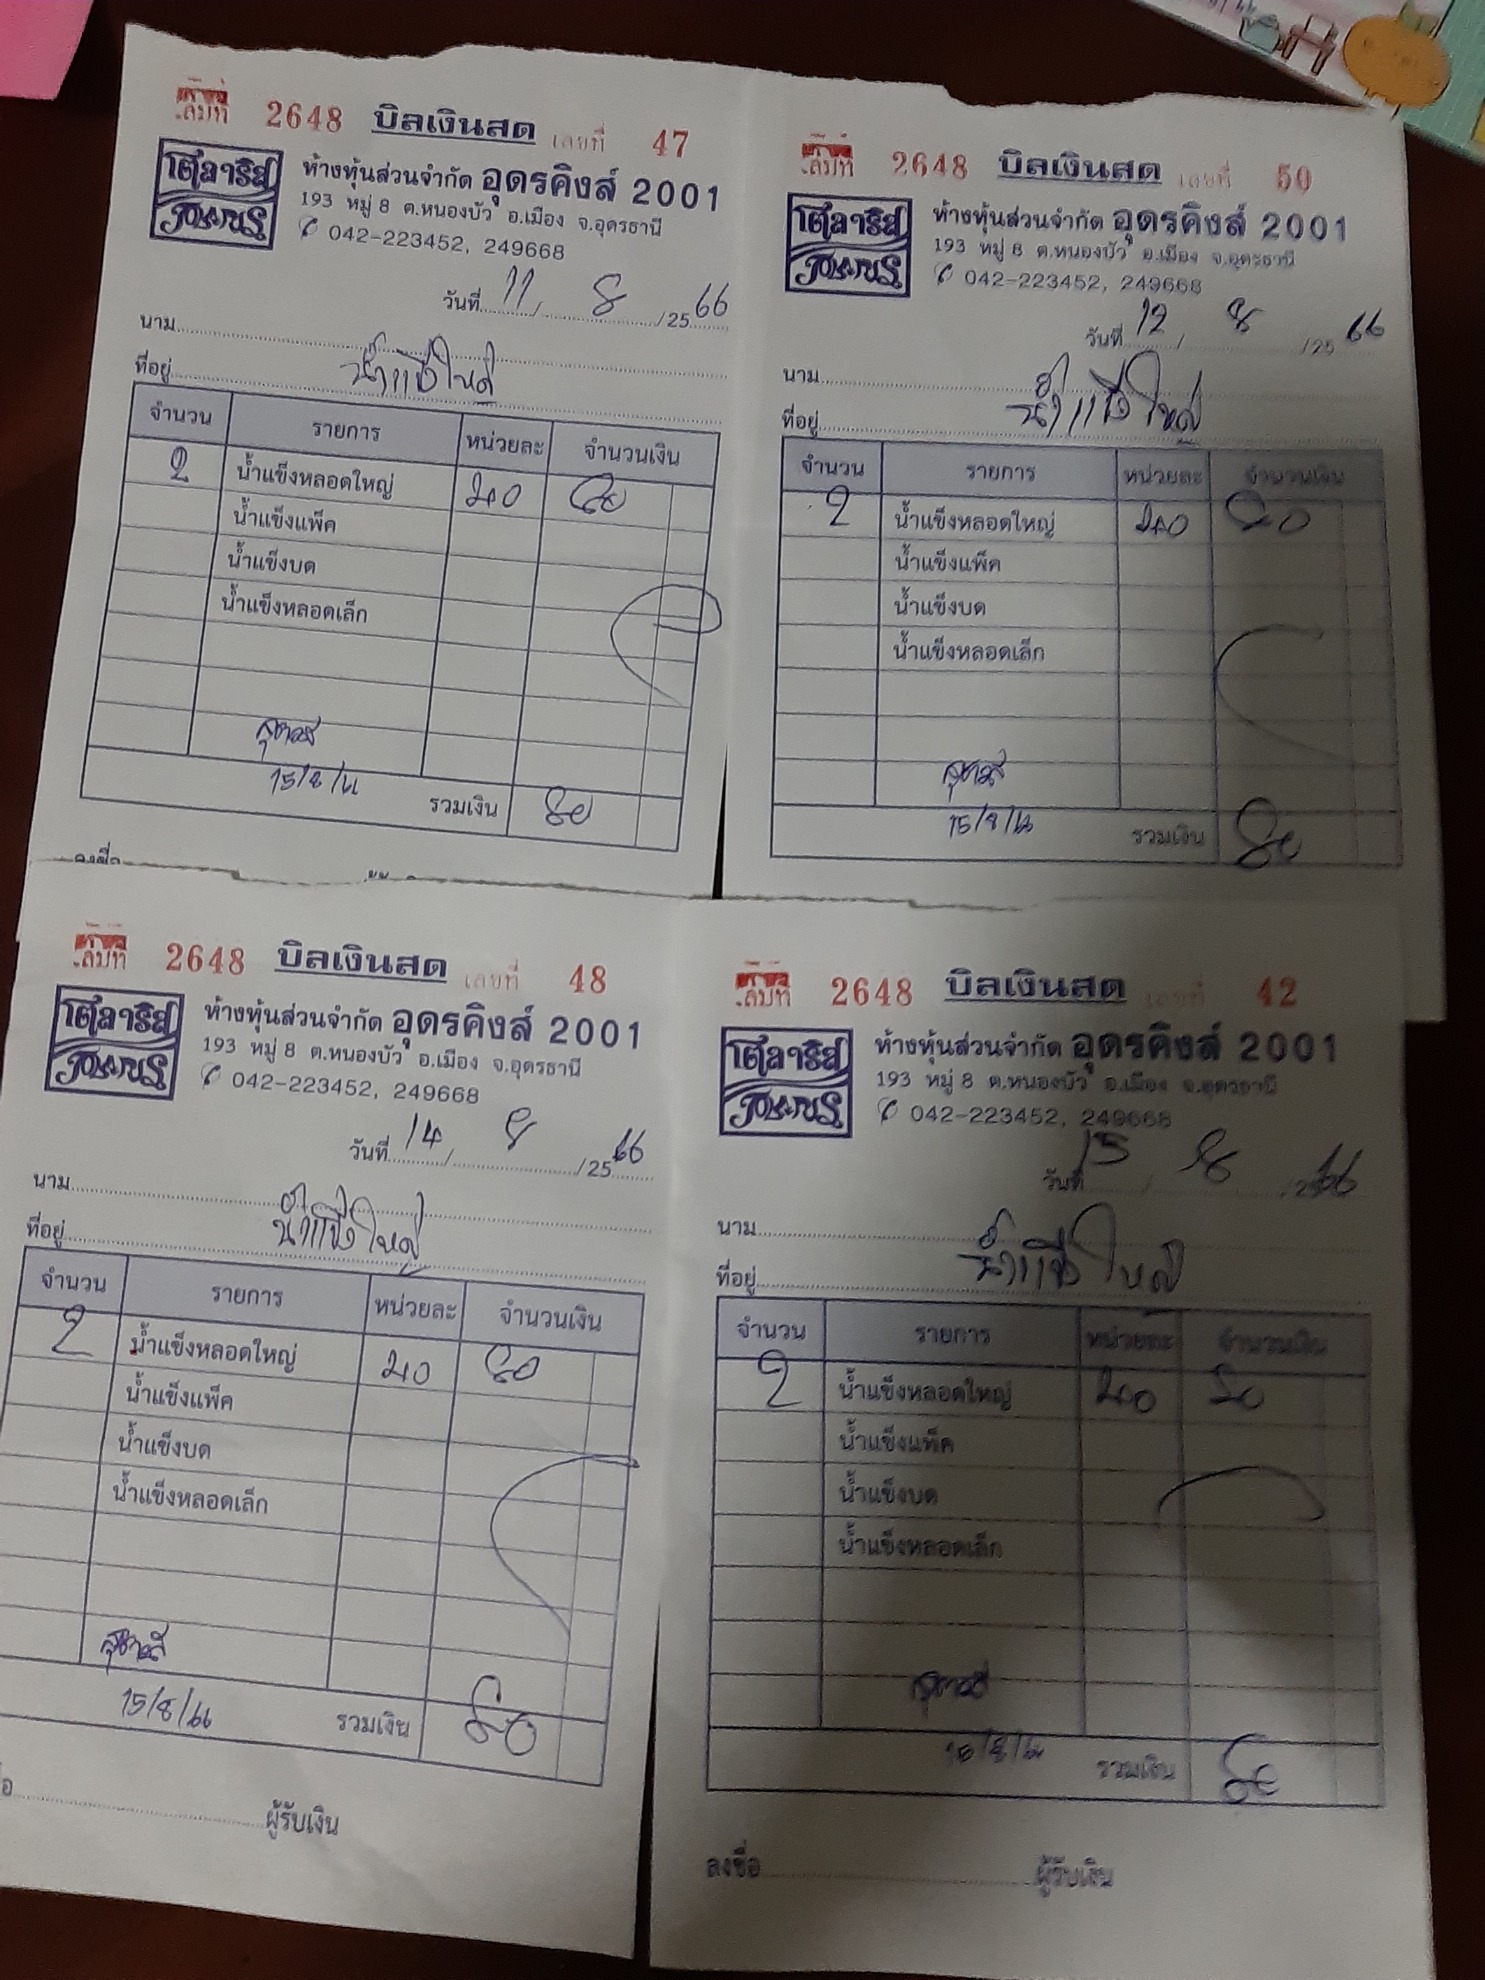 เล่มที่ 2648 บิลเงินสด เลขที่ 47
โตลาริส
ห้างหุ้นส่วนจำกัด อุดรคิงส์ 2001
193 หมู่ 8 ต.หนองบัว อ.เมือง จ.อุดรธานี
042-223452, 249668
วันที่ 11 / 8 / 25 66
นาม
ที่อยู่ น้ำแข็งใหญ่
จำนวน รายการ หน่วยละ จำนวนเงิน
2 น้ำแข็งหลอดใหญ่ 40 80
น้ำแข็งแพ็ค
น้ำแข็งบด
น้ำแข็งหลอดเล็ก
15/8/66
รวมเงิน 80
ลงชื่อ
เล่มที่ 2648 บิลเงินสด เลขที่ 50
โตลาริส
ห้างหุ้นส่วนจำกัด อุดรคิงส์ 2001
193 หมู่ 8 ต.หนองบัว อ.เมือง จ.อุดรธานี
042-223452, 249668
วันที่ 12 / 8 / 25 66
นาม
ที่อยู่ น้ำแข็งใหญ่
จำนวน รายการ หน่วยละ จำนวนเงิน
2 น้ำแข็งหลอดใหญ่ 40 80
น้ำแข็งแพ็ค
น้ำแข็งบด
น้ำแข็งหลอดเล็ก
15/8/66
รวมเงิน 80
เล่มที่ 2648 บิลเงินสด เลขที่ 48
โตลาริส
ห้างหุ้นส่วนจำกัด อุดรคิงส์ 2001
193 หมู่ 8 ต.หนองบัว อ.เมือง จ.อุดรธานี
042-223452, 249668
วันที่ 14 / 8 / 25 66
นาม
ที่อยู่ น้ำแข็งใหญ่
จำนวน รายการ หน่วยละ จำนวนเงิน
2 น้ำแข็งหลอดใหญ่ 40 80
น้ำแข็งแพ็ค
น้ำแข็งบด
น้ำแข็งหลอดเล็ก
15/8/66
รวมเงิน 80
ผู้รับเงิน
เล่มที่ 2648 บิลเงินสด เลขที่ 42
โตลาริส
ห้างหุ้นส่วนจำกัด อุดรคิงส์ 2001
193 หมู่ 8 ต.หนองบัว อ.เมือง จ.อุดรธานี
042-223452, 249668
วันที่ 15 / 8 / 25 66
นาม
ที่อยู่ น้ำแข็งใหญ่
จำนวน รายการ หน่วยละ จำนวนเงิน
2 น้ำแข็งหลอดใหญ่ 40 80
น้ำแข็งแพ็ค
น้ำแข็งบด
น้ำแข็งหลอดเล็ก
15/8/66
รวมเงิน 80
ลงชื่อ ผู้รับเงิน